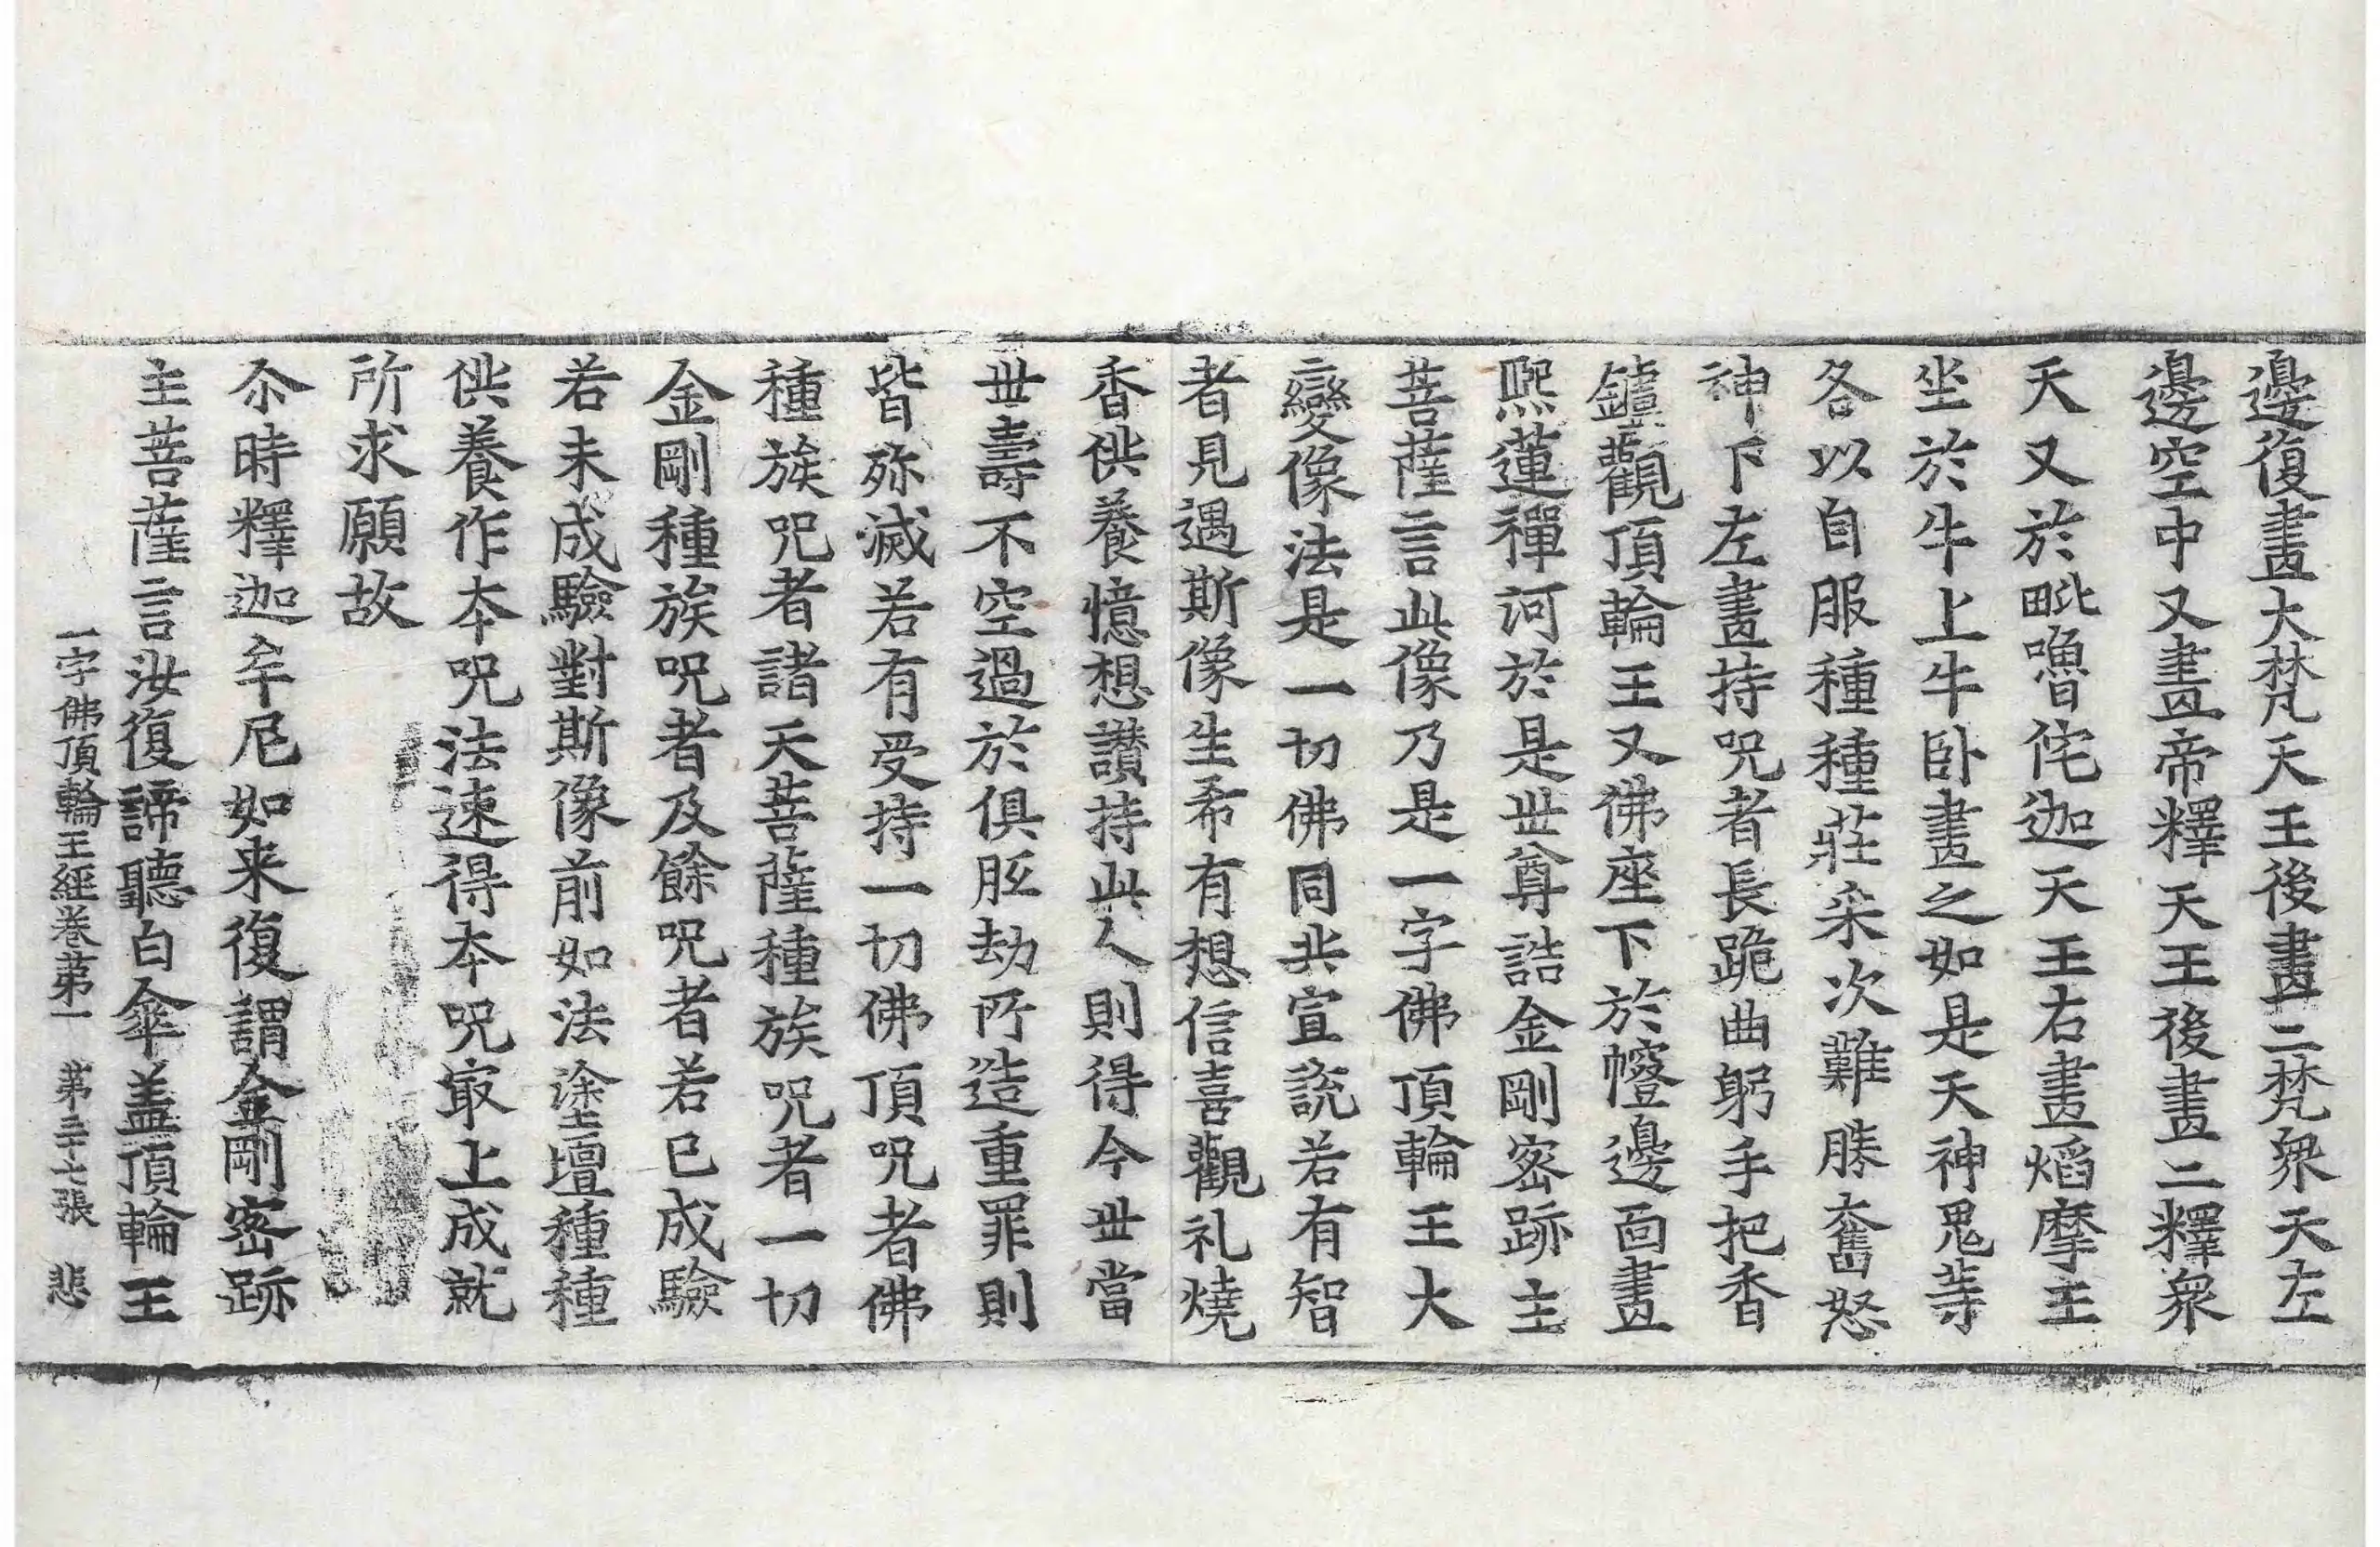 邊復畫大梵天王後畫二梵衆天左
邊空中又畫帝釋天王後畫二釋衆
天又於毗嚕侘迦天王右畫焰摩王
坐於牛上牛卧畫之如是天神鬼等
各以自服種種莊采次難勝奮怒
神下左畫持呪者長跪曲躬手把香
鑪觀頂輪王又佛座下於幢邊面畫
熈蓮禪河於是世尊誥金剛密跡主
菩薩言此像乃是一字佛頂輪王大
變像法是一切佛同共宣說若有智
者見遇斯像生希有想信喜觀礼燒
香供養憶想讃持此人則得今世當
世壽不空過於俱胝劫所造重罪則
皆殄滅若有受持一切佛頂呪者佛
種族呪者諸天菩薩種族呪者一切
金剛種族呪者及餘呪者若已成驗
若未成驗對斯像前如法塗壇種種
供養作本呪法速得本呪㝡上成就
所求願故
尒時釋迦牟尼如来復謂金剛密跡
主菩薩言汝復諦聽白傘盖頂輪王
一字佛頂輪王經卷苐一 苐三十七張 悲